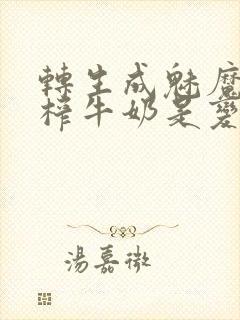 轉生成魅魔
榨牛奶是變
湯嘉微